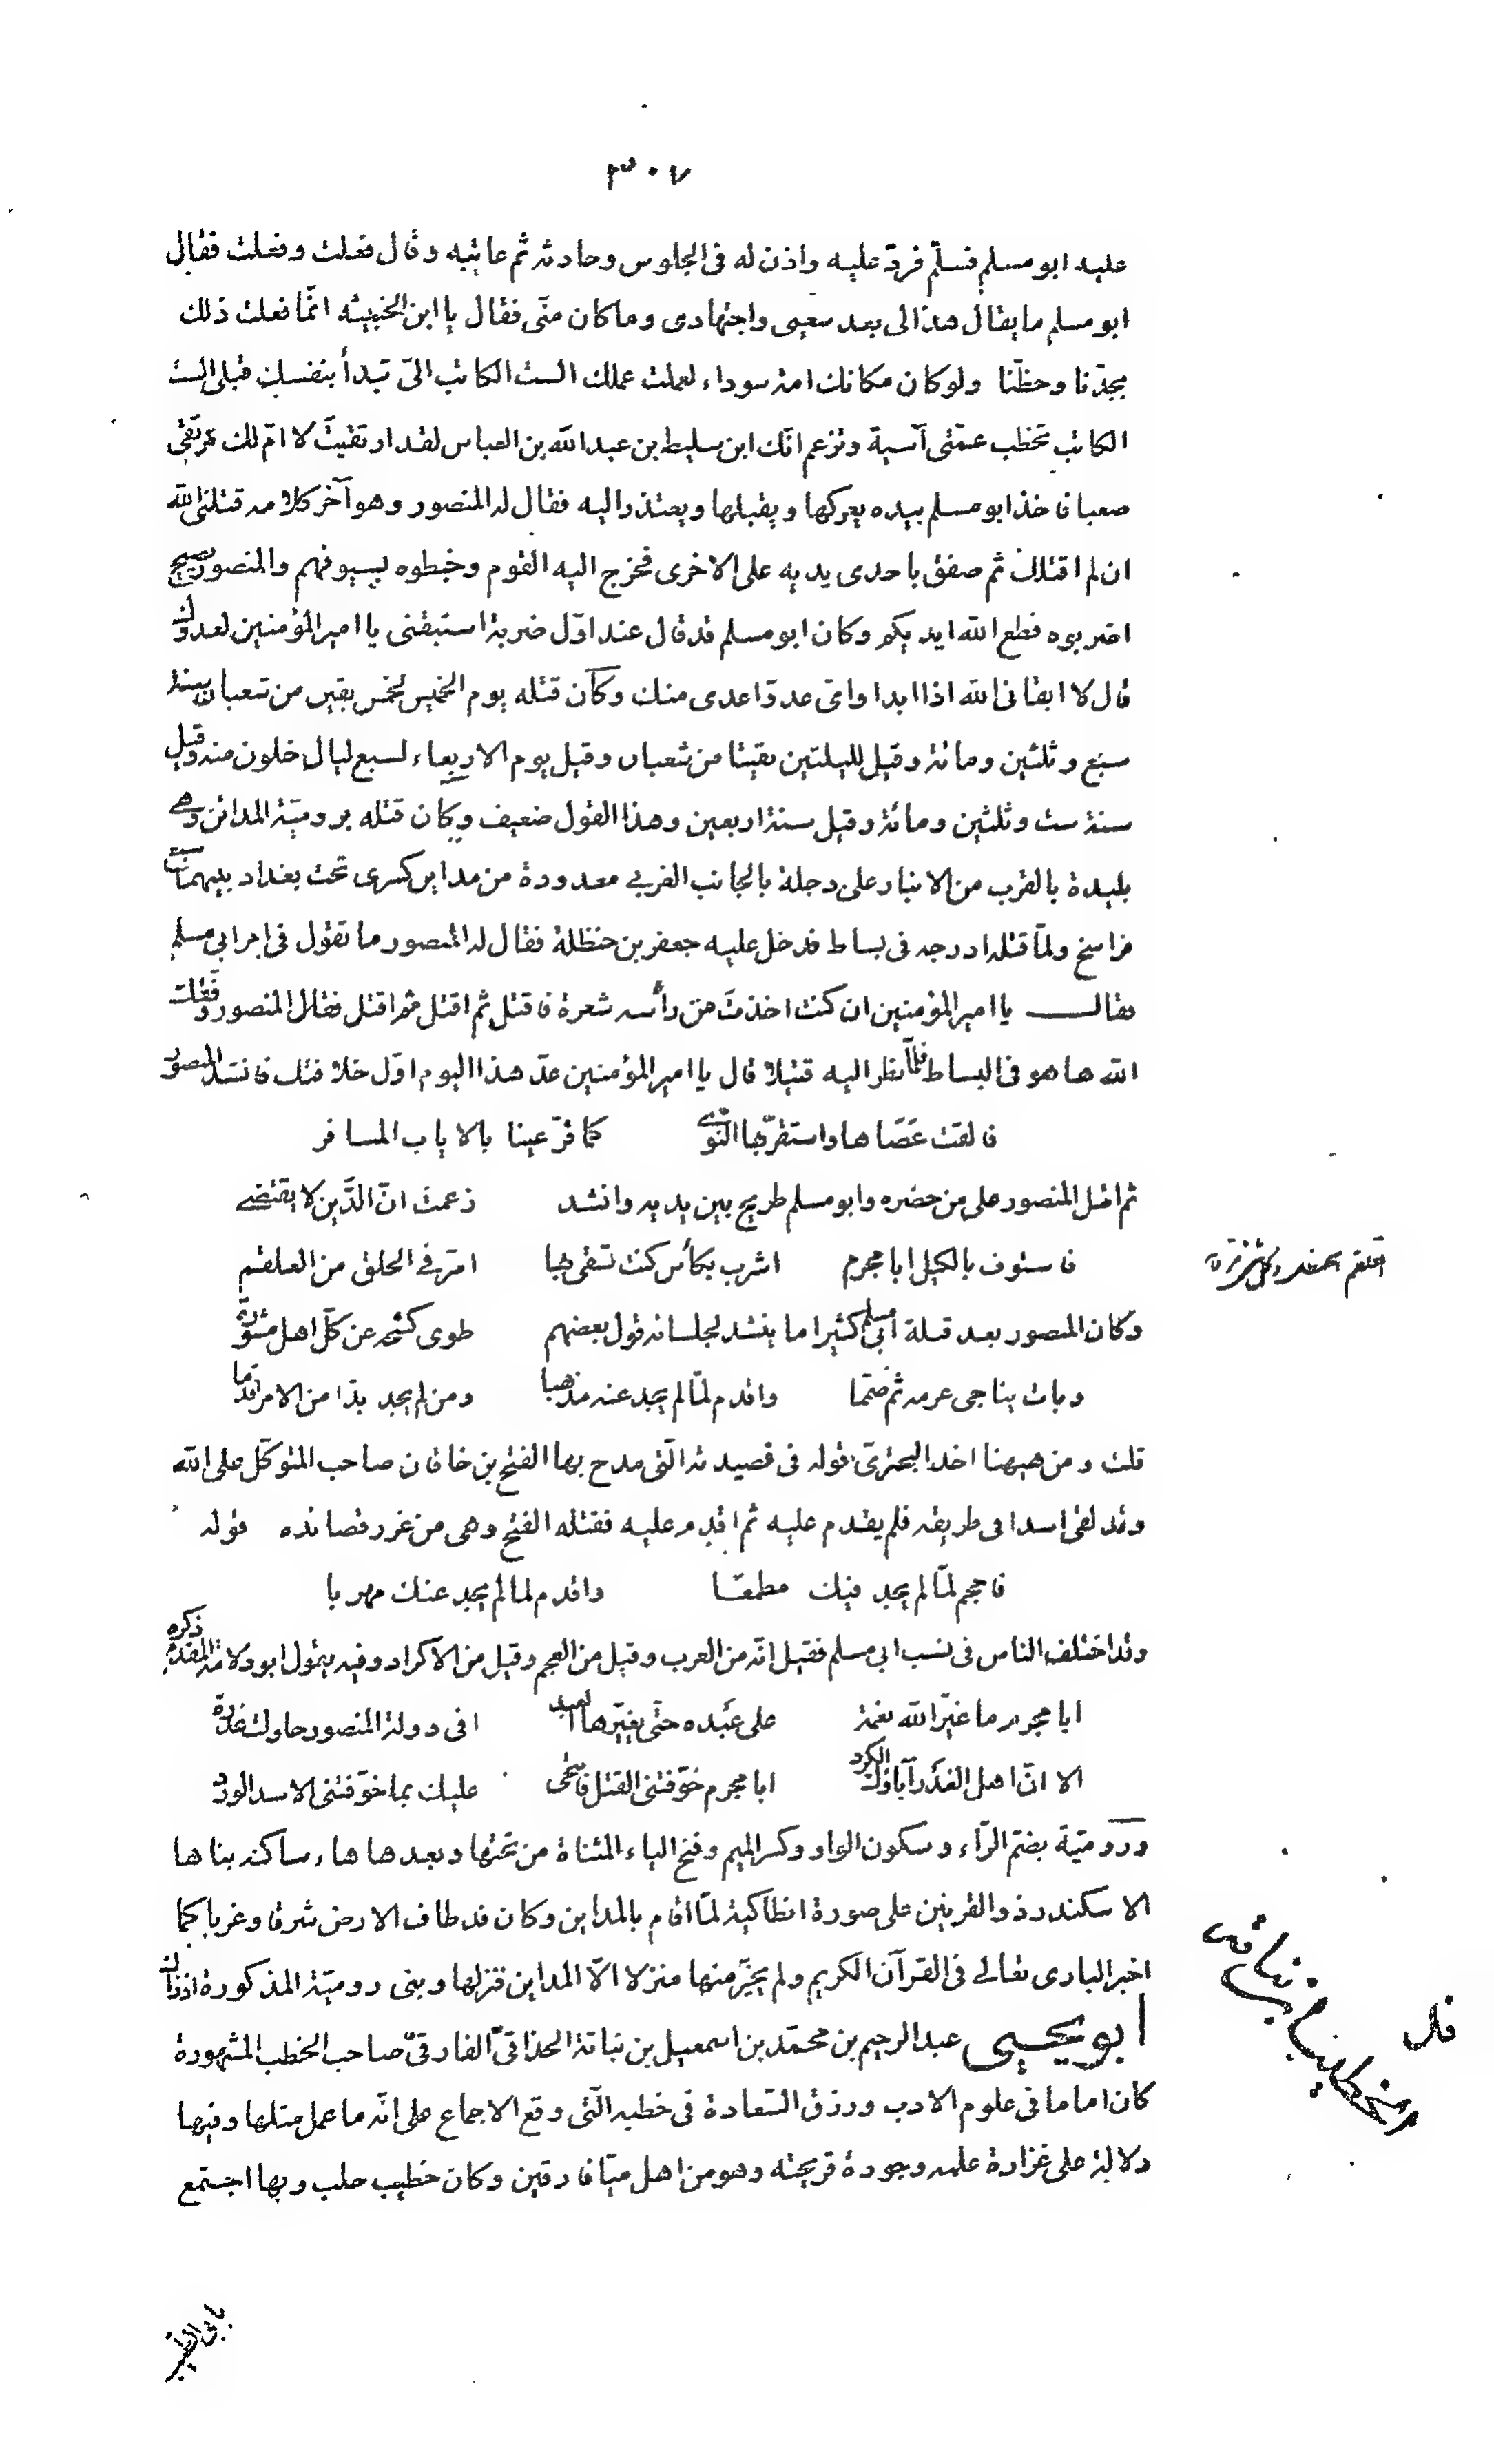 ٣٠٧
عليه ابو مسلم فسلّم فردّ عليه واذن له فى الجلوس وحادثه ثم عاتبه وقال فعلت وفعلت فقال
ابو مسلم ما يقال هذا لى بعد سعيى واجتهادى وما كان منّى فقال يا ابن الخبيثه انّما فعلت ذلك
بجدّنا وحظّنا ولو كان مكانك امة سوداء لعملت عملك الست الكاتب الىّ تبدأ بنفسك قبلى الست
الكاتب تخطب عمّتى آسية وتزعم انّك ابن سليط بن عبد الله بن العباس لقد ارتقيتَ لا امّ لك مرتقى
صعبا فاخذ ابو مسلم بيده يعركها ويقبلها ويعتذر اليه فقال له المنصور وهو آخر كلامه قتلنى الله
ان لم اقتلك ثم صفق باحدى يديه على الاخرى فخرج اليه القوم وخبطوه بسيوفهم والمنصور يصيح
اضربوه قطع الله ايديكم وكان ابو مسلم قد قال عند اوّل ضربة استبقنى يا امير المؤمنين لعدوك
قال لا ابقانى الله اذا ابدا واىّ عدوّ اعدى منك وكان قتله يوم الخميس لخمس بقين من شعبان سنة
سبع وثلثين ومائة وقيل لليلتين بقيتا من شعبان وقيل يوم الاربعاء لسبع ليال خلون منه وقيل
سنة ست وثلثين ومائة وقيل سنة اربعين وهذا القول ضعيف وكان قتله برومية المدائن وهى
بليدة بالقرب من الانبار على دجلة بالجانب الغربى معدودة من مداين كسرى تحت بغداد بينهما سبعة
فراسخ ولمّا قتله ادرجه فى بساط فدخل عليه جعفر بن حنظلة فقال له المنصور ما تقول فى امر ابى مسلم
فقال يا امير المؤمنين ان كنت اخذتَ من رأسه شعرة فاقتل ثم اقتل ثم اقتل فقال المنصور وفّقك
الله ها هو فى البساط فلمّا نظر اليه قتيلا قال يا امير المؤمنين عدّ هذا اليوم اوّل خلافتك فانشد المنصور
فالقت عَصَاها واستقرّ بها النّوى كما قرّ عينا بالاياب المسافر
ثم اقبل المنصور على من حضره وابو مسلم طريح بين يديه وانشد زعمتَ انّ الدَّين لا يقتضى
فاستوف بالكيل ابا مجرم اشرب بكأس كنت تسقى بها امرّ فى الحلق من العلقم
العلقم الحنظل وكل شئ مرّ
وكان المنصور بعد قتلة ابى مسلم كثيرا ما ينشد لجلسائه قول بعضهم طوى كشحه عن كلّ اهل مشورة
وبات يناجى عزمه ثم صمّما واقدم لمّا لم يجد عنه مذهبا ومن لم يجد بدّا من الامر اقدما
قلت ومن هيهنا اخذ البحترىّ قوله فى قصيدته الّتى مدح بها الفتح بن خاقان صاحب المتوكّل على الله
وقد لقى اسدا فى طريقه فلم يقدم عليه ثم اقدم عليه فقتله الفتح وهى من غرر قصائده قوله
فاحجم لمّا لم يجد فيك مطمعًا واقدم لما لم يجد عنك مهربا
وقد اختلف الناس فى نسب ابى مسلم فقيل انّه من العرب وقيل من العجم وقيل من الاكراد وفيه يقول ابو دلامة المقدّم ذكره
ابا مجرم ما غيّر الله نعمة على عبده حتّى يغيّرها العبد افى دولة المنصور حاولت غدرة
الا انّ اهل الغدر آباؤك الكرد ابا مجرم خوّفتنى القتل فانتحى عليك بما خوّفتنى الاسد الورد
ورومية بضمّ الرّاء وسكون الواو وكسر الميم وفتح الياء المثناة من تحتها وبعدها هاء ساكنه بناها
الاسكندر ذو القرنين على صورة انطاكية لمّا اقام بالمداين وكان قد طاف الارض شرقا وغربا كما
اخبر البارى تعالى فى القرآن الكريم ولم يختر منها منزلا الّا المداين فنزلها وبنى رومية المذكورة اذ ذاك
ابو يحيى عبد الرحيم بن محمّد بن اسمعيل بن نباتة الحذاقىّ الفارقىّ صاحب الخطب المشهورة
الخطيب ابن نباته
كان اماما فى علوم الادب ورزق السّعادة فى خطبه الّتى وقع الاجماع على انّه ما عمل مثلها وفيها
دلالة على غزارة علمه وجودة قريحته وهو من اهل ميّافارقين وكان خطيب حلب وبها اجتمع
بابى الطيب